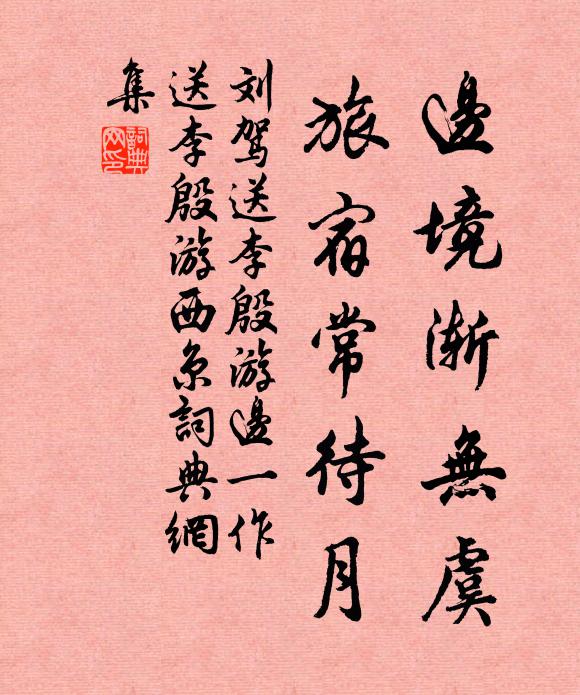 邊境漸無虞
旅宿常待月
刘駕送李殷游邊一作
送李殷游西京詞典網
集
詞典
网印